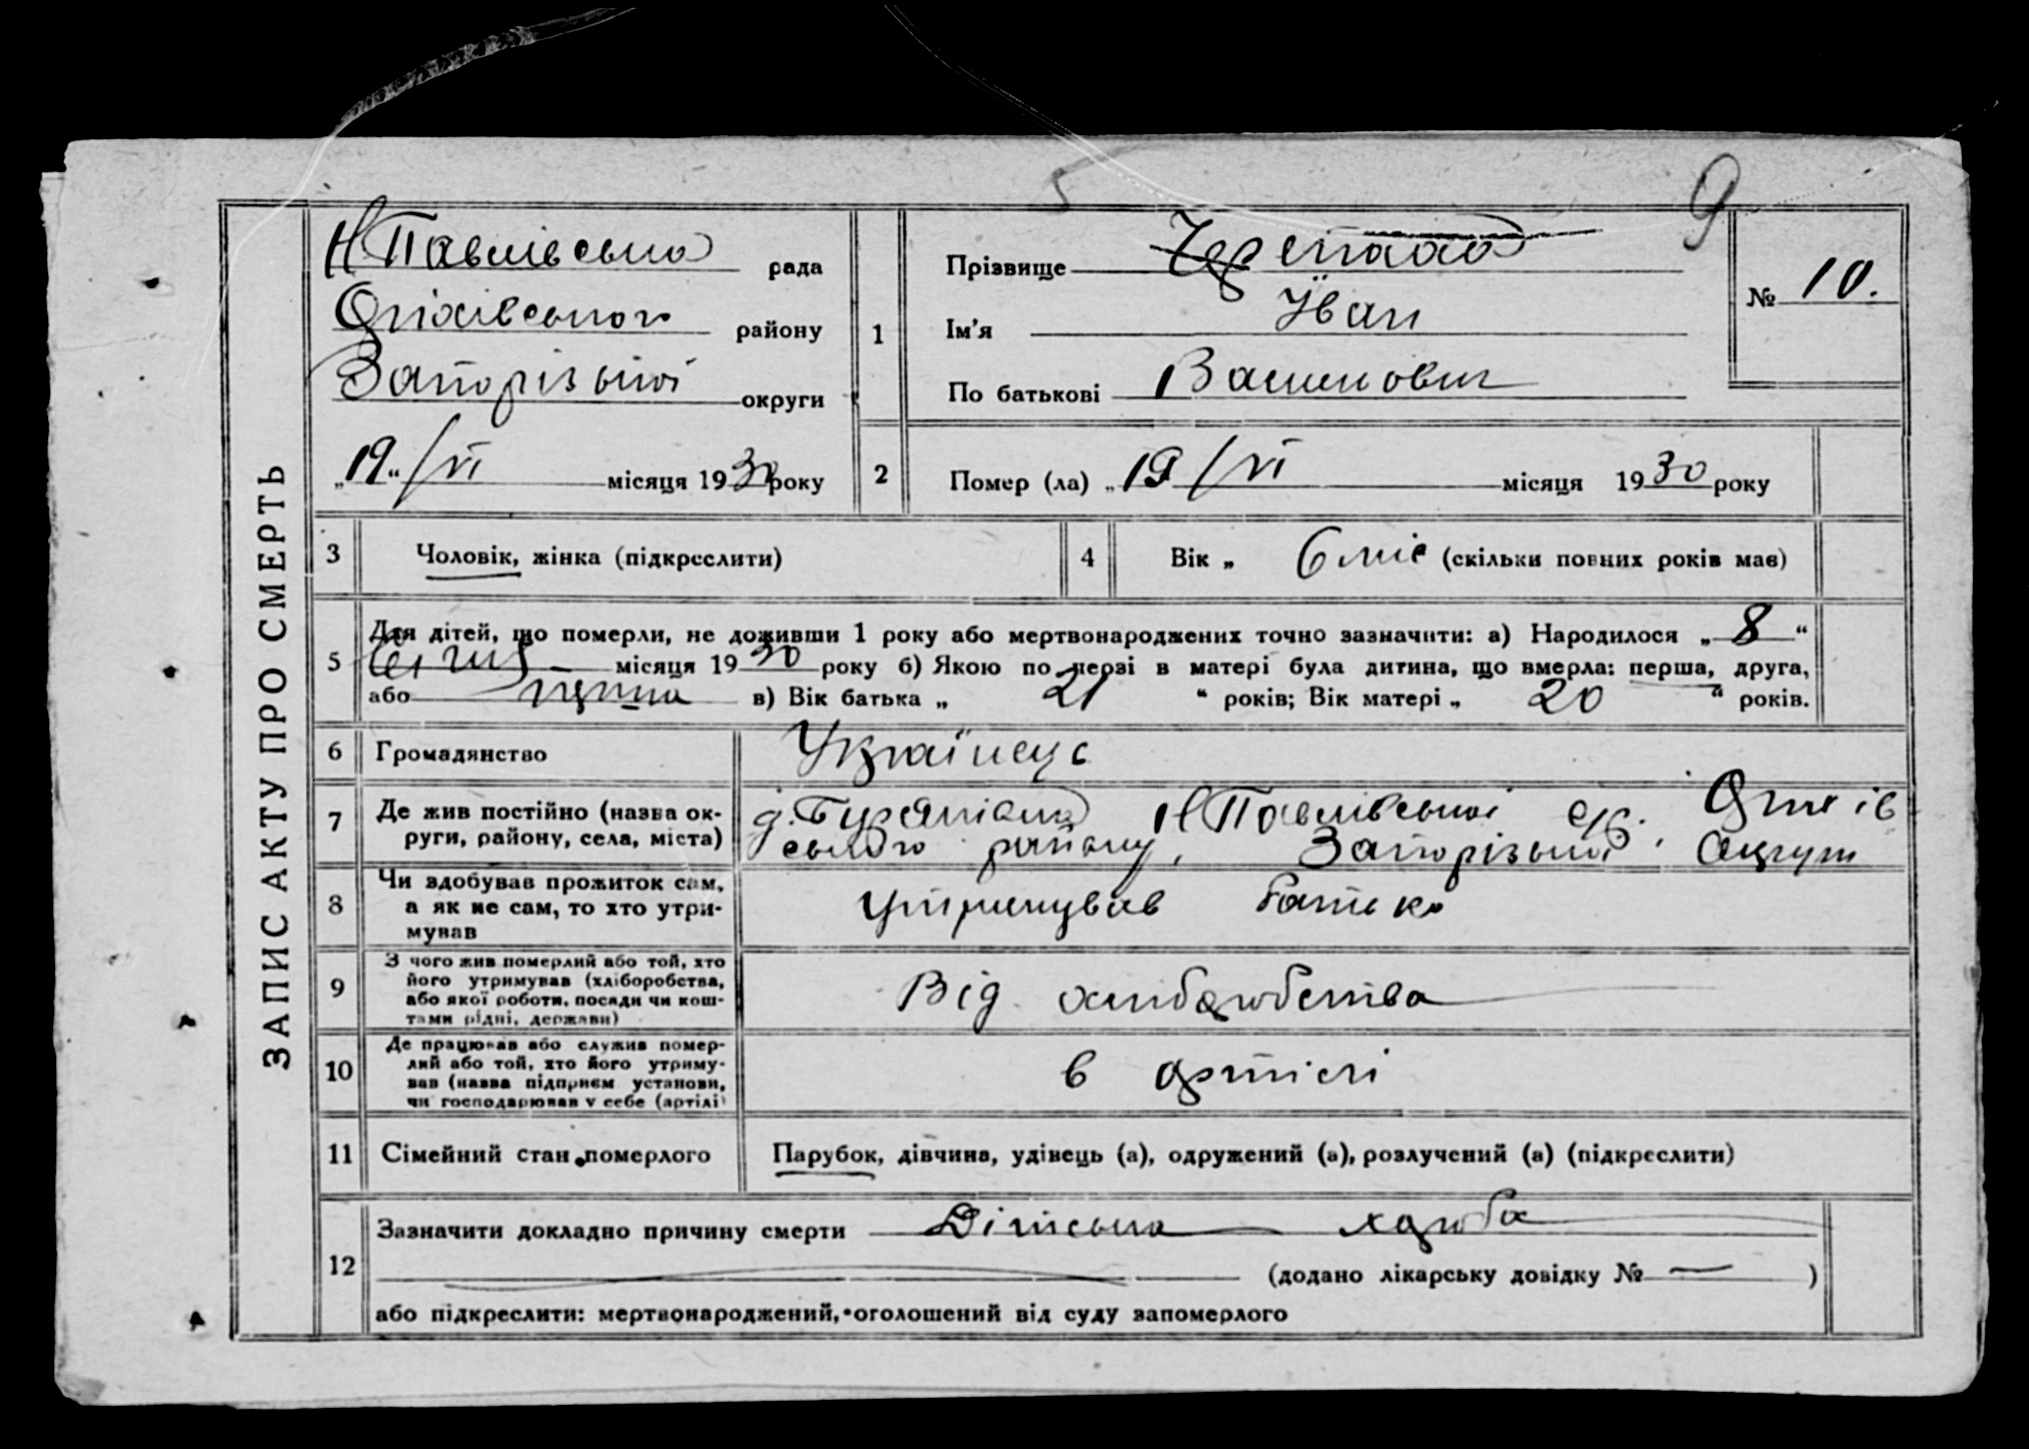 5
9
ЗАПИС АКТУ ПРО СМЕРТЬ
Н Павлівська рада
Оріхівського району
Запорізької округи
"19" / VI місяця 1930 року
1
Прізвище
Ім'я Іван
По батькові
№ 10.
2 Помер (ла) „ 19 / VI місяця 1930 року
3 Чоловік, жінка (підкреслити)
4 Вік „ 6 міс (скільки повних років має)
5 Для дітей, що померли, не доживши 1 року або мертвонароджених точно зазначити: а) Народилося „ 8 "
місяця 1930 року б) Якою по черзі в матері була дитина, що вмерла: перша, друга,
або перша в) Вік батька „ 21 " років; Вік матері „ 20 " років.
6 Громадянство Українець
7 Де жив постійно (назва округи, району, села, міста)
Н Павлівської с/р. Оріхів
ського району, Запорізької Округи
8 Чи здобував прожиток сам, а як не сам, то хто утримував
утримував батько
9 З чого жив померлий або той, хто його утримував (хліборобства, або якої роботи, посади чи коштами рідні, держави)
Від хліборобства
10 Де працював або служив померлий або той, хто його утримував (назва підприєм установи, чи господарював у себе (артілі)
в артілі
11 Сімейний стан померлого
Парубок, дівчина, удівець (а), одружений (а), розлучений (а) (підкреслити)
12 Зазначити докладно причину смерти Дітська хороба
(додано лікарську довідку № — )
або підкреслити: мертвонароджений, оголошений від суду запомерлого